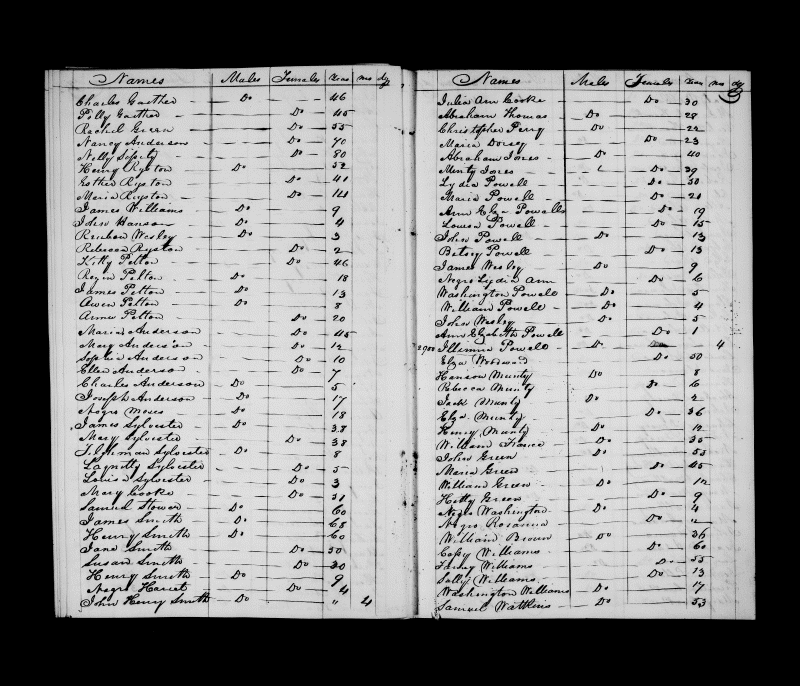 Names Males Females Years mo dy
Charles Gaither Do 46
Polly Gaither Do 45
Rachel Green Do 55
Nancy Anderson Do 70
Nelly Do 80
Henry Ryston Do 52
Esther Ryston Do 41
Maria Ryston Do 14
James Williams Do 9
John Hanson Do 4
Reuben Wesley Do 3
Rebecca Ryston Do 2
Kitty Pelton Do 46
Pelton Do 18
James Pelton Do 13
Owen Pelton Do 8
Pelton Do 20
Maria Anderson Do 45
Mary Anderson Do 12
Sophia Anderson Do 10
Ellen Anderson Do 7
Charles Anderson Do 5
Joseph Anderson Do 17
Negro Moses Do 1
James Sylvester Do 18
Mary Sylvester Do 38
Tilghman Sylvester Do 8
Sylvester Do 5
Louisa Sylvester Do 3
Mary Cooke Do 31
Samuel Do 60
James Smith Do 65
Henry Smith Do 60
Jane Smith Do 50
Susan Smith Do 30
Henry Smith Do 9
Negro Do 4
John Henry Smith Do " 4
Names Males Females Years mo dy
Julia Ann Cooke Do 30
Abraham Thomas Do 28
Christopher Perry Do 22
Maria Dorsey Do 23
Abraham Jones Do 40
Minty Jones Do 39
Lydia Powell Do 30
Maria Powell Do 21
Ann Powells Do 19
Louisa Powell Do 15
John Powell Do 13
Betsy Powell Do 13
James Wesley Do 9
Negro Lydia Ann Do 6
Washington Powell Do 5
William Powell Do 4
John Wesley Do 5
Ann Elizabeth Powell Do 1
Powell Do 4
Eliza Woodward Do 50
Hanson Munty Do 8
Rebecca Munty Do 6
Jack Munty Do 2
Eliza Munty Do 36
Henry Munty Do 12
William Do 35
John Green Do 53
Maria Green Do 45
William Green Do 12
Hetty Green Do 9
Negro Washington Do 4
Negro Rosanna Do 2
William Brown Do 36
Williams Do 60
Williams Do 55
Sally Williams Do 13
Washington Williams Do 17
Samuel Watkins Do 53